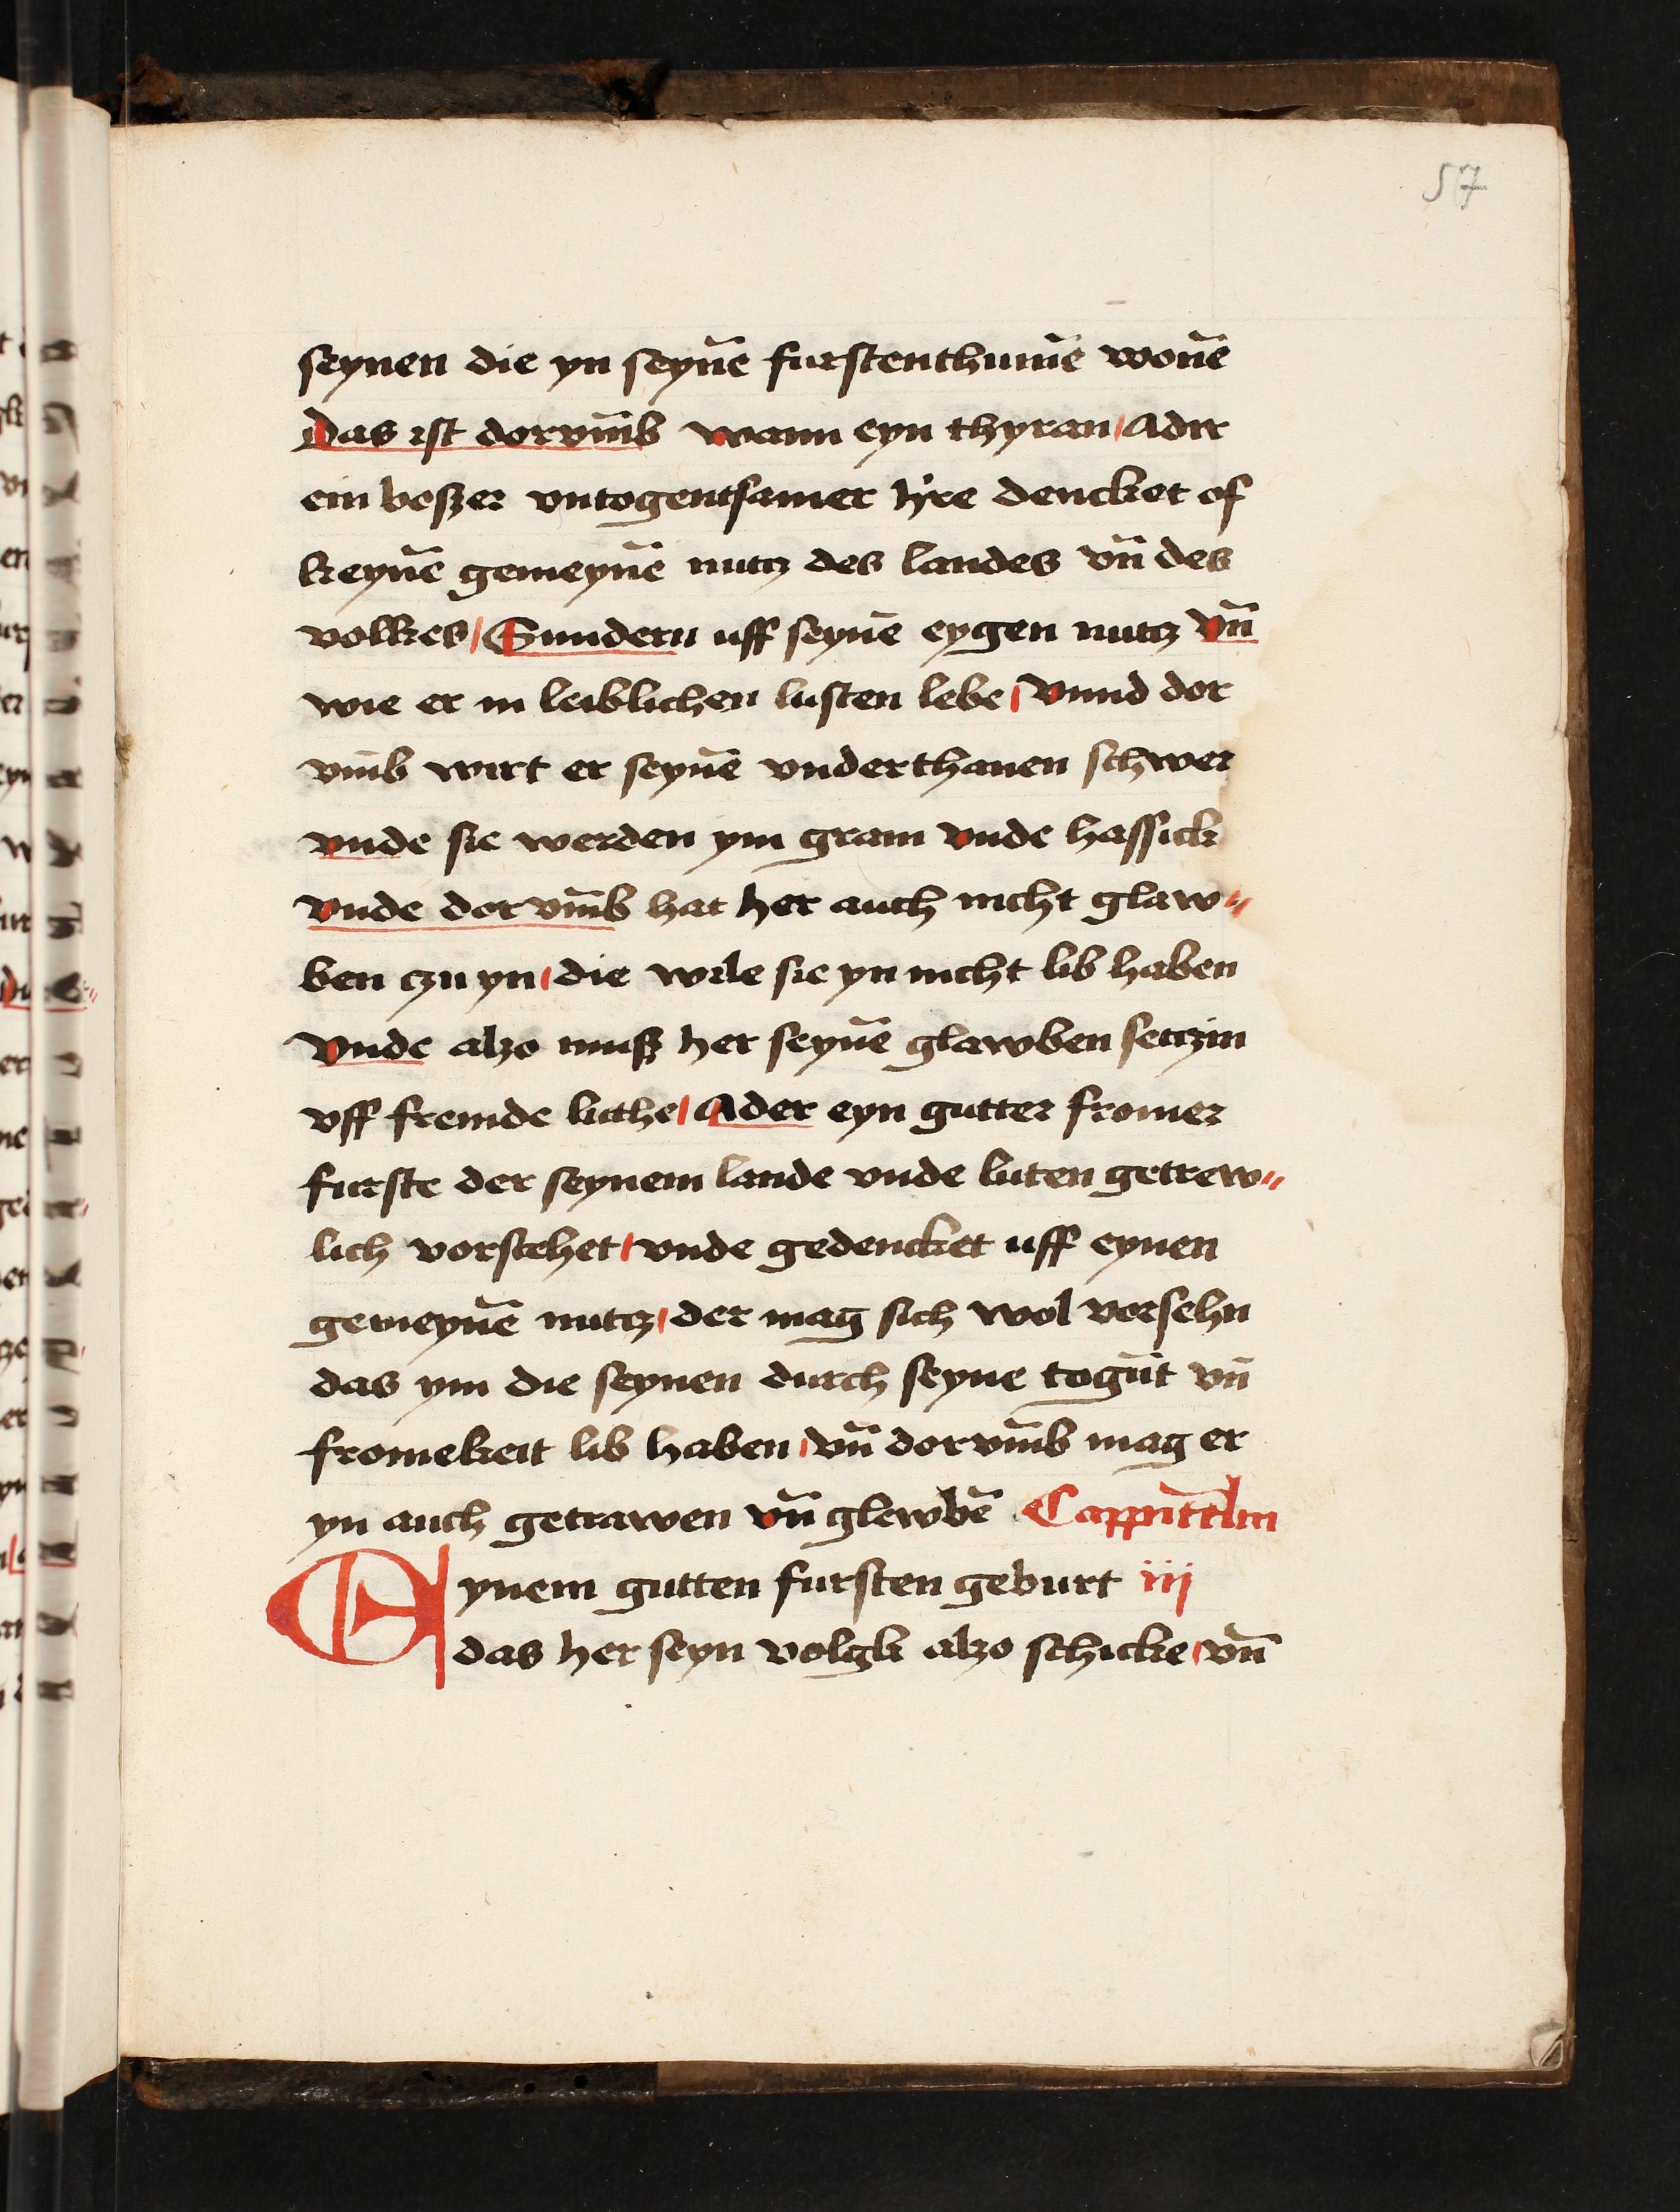 57
seynen die yn seynē furstenthumē wonē
Das ist dorvm̄b wann eyn thyran / Adir
ein boszer vntogentsamer h're dencket of
keynē gemeynē nutcz des landes vn̄ des
volkes / Sundern uff seynē eygen nutcz vn̄
wie er in leiblichen lusten lebe / Vnnd dor
vm̄b wirt er seynē vnderthanen schwer
vnde sie werden ym gram vnde hassick
vnde dor vm̄b hat her auch nicht glaw〃
ben czu yn / die wile sie yn nicht lib haben
Vnde alzo musz her seynē glawben setczin
vff fremde luthe / Ader eyn gutter fromer
furste der seynem lande vnde luten getrew〃
lich vorstehet / vnde gedencket uff eynen
gemeynē nutcz / der mag sich wol vorsehn
das ym die seynen durch seyne togūt vn̄
fromekeit lib haben / vn̄ dorvm̄b mag er
yn auch getrawen vn̄ glewbē Cappitt̄lm
Eynem gutten fursten geburt iij
das her seyn volgk alzo schicke / vn̄